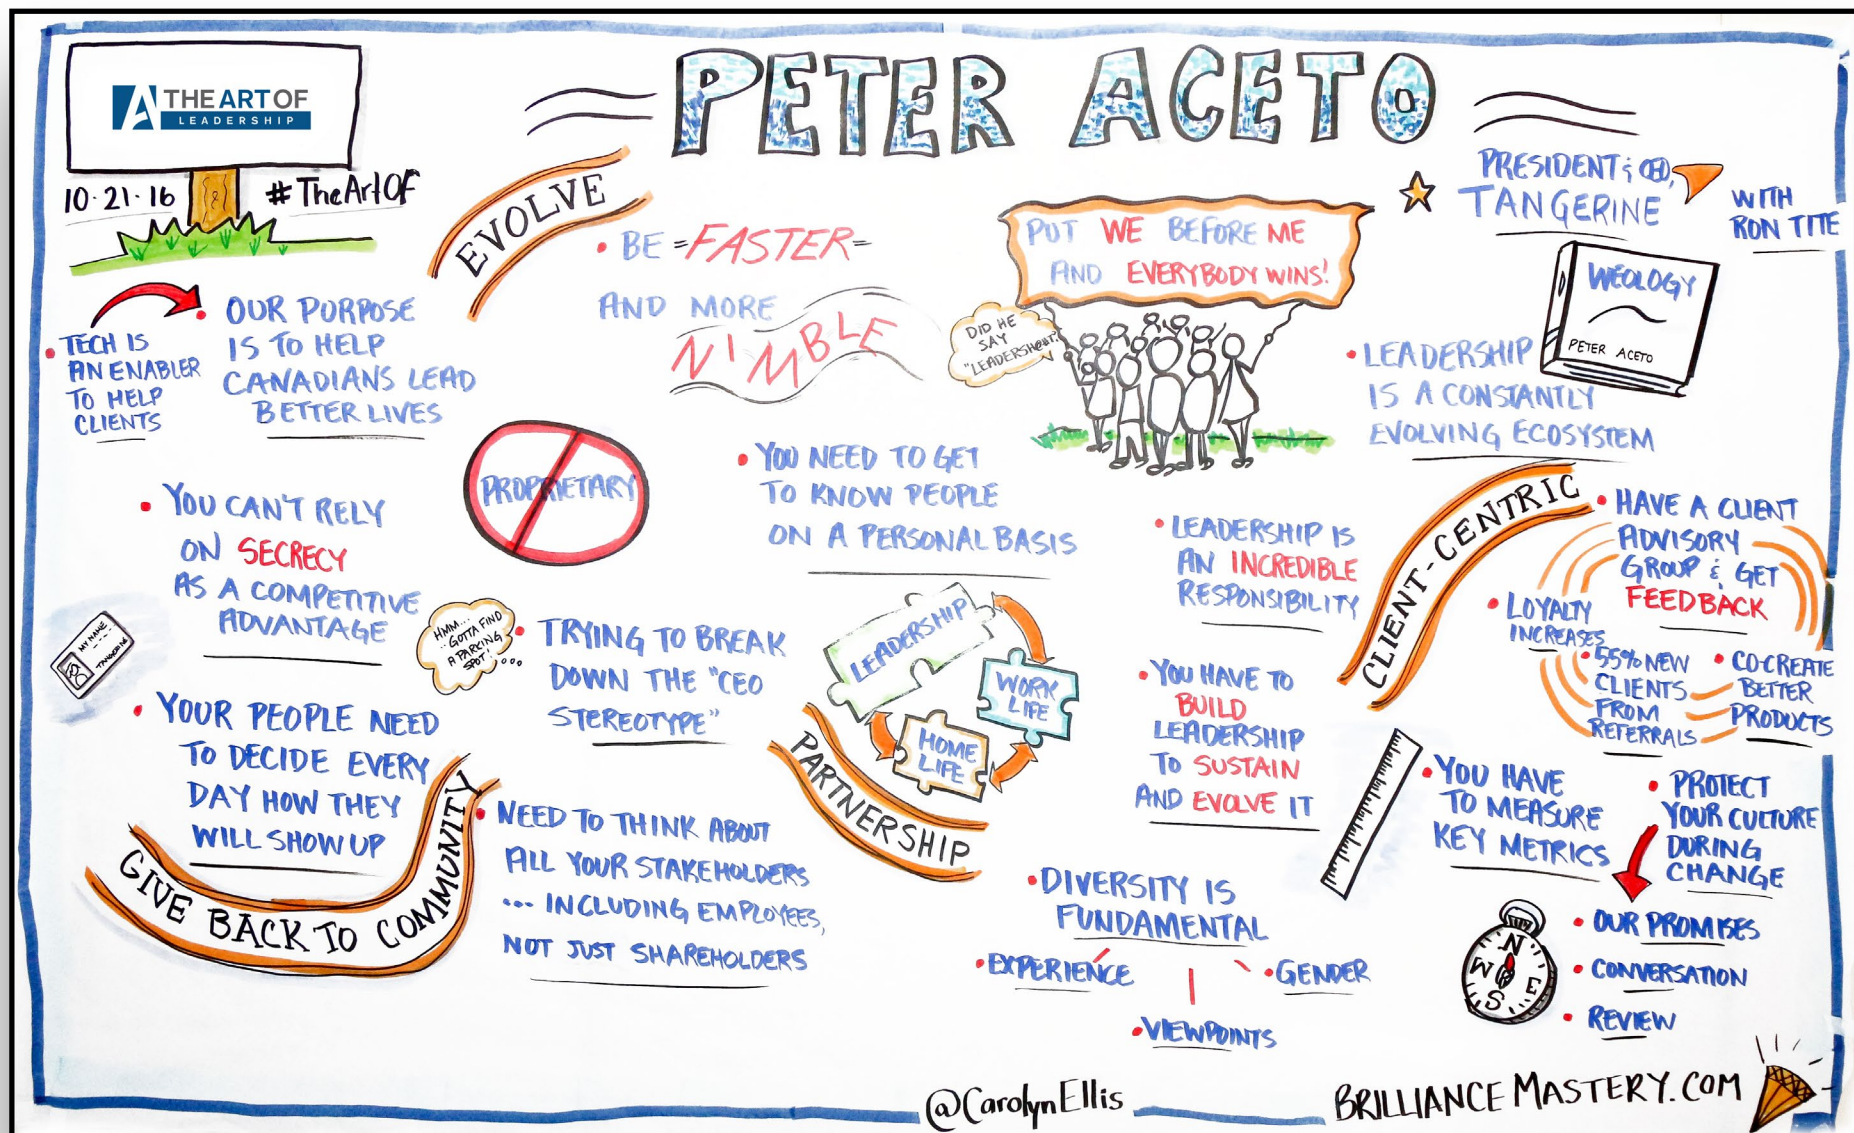 THE ART OF
LEADERSHIP
10·21·16
#TheArtOf
PETER ACETO
PRESIDENT & CEO,
TANGERINE
WITH
RON TITE
EVOLVE
• BE =FASTER=
AND MORE
NIMBLE
PUT WE BEFORE ME
AND EVERYBODY WINS!
DID HE
SAY
"LEADERSHOUT?"
WEOLOGY
PETER ACETO
• TECH IS
AN ENABLER
TO HELP
CLIENTS
• OUR PURPOSE
IS TO HELP
CANADIANS LEAD
BETTER LIVES
• LEADERSHIP
IS A CONSTANTLY
EVOLVING ECOSYSTEM
PROPRIETARY
• YOU NEED TO GET
TO KNOW PEOPLE
ON A PERSONAL BASIS
• YOU CAN'T RELY
ON SECRECY
AS A COMPETITIVE
ADVANTAGE
• LEADERSHIP IS
AN INCREDIBLE
RESPONSIBILITY
CLIENT-CENTRIC
• HAVE A CLIENT
ADVISORY
GROUP & GET
FEEDBACK
• LOYALTY
INCREASES
• 55% NEW
CLIENTS
FROM
REFERRALS
• CO-CREATE
BETTER
PRODUCTS
MY NAME
TANGERINE
HMM...
GOTTA FIND
A PARKING
SPOT!...
• TRYING TO BREAK
DOWN THE "CEO
STEREOTYPE"
LEADERSHIP
WORK
LIFE
HOME
LIFE
PARTNERSHIP
• YOU HAVE TO
BUILD
LEADERSHIP
TO SUSTAIN
AND EVOLVE IT
• YOUR PEOPLE NEED
TO DECIDE EVERY
DAY HOW THEY
WILL SHOW UP
GIVE BACK TO COMMUNITY
• NEED TO THINK ABOUT
ALL YOUR STAKEHOLDERS
... INCLUDING EMPLOYEES,
NOT JUST SHAREHOLDERS
• YOU HAVE
TO MEASURE
KEY METRICS
• PROTECT
YOUR CULTURE
DURING
CHANGE
• DIVERSITY IS
FUNDAMENTAL
• EXPERIENCE
• VIEWPOINTS
• GENDER
N
W
E
S
• OUR PROMISES
• CONVERSATION
• REVIEW
@CarolynEllis
BRILLIANCEMASTERY.COM